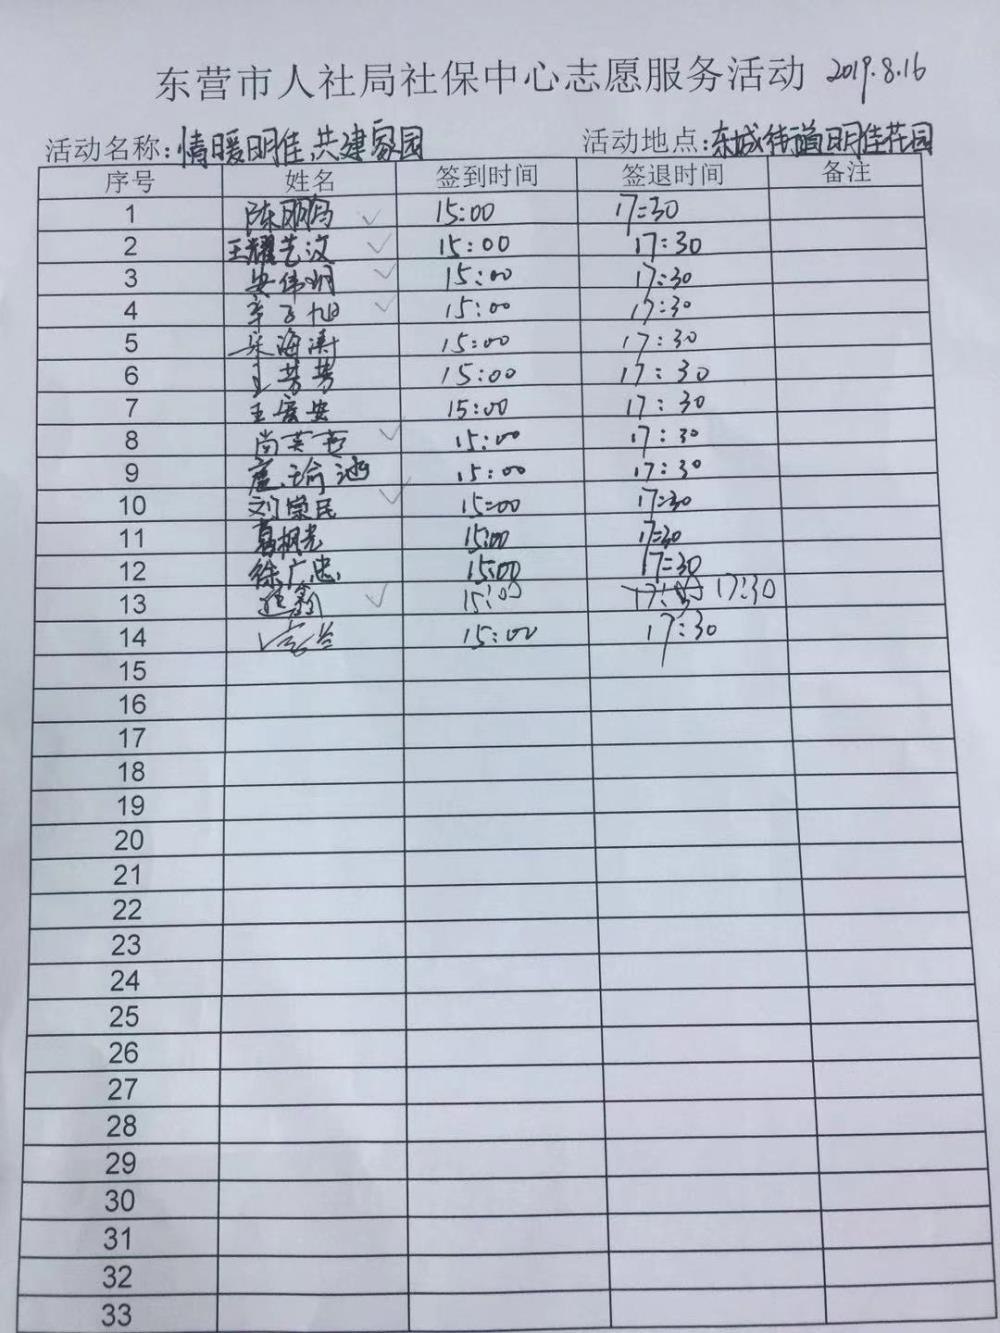 东营市人社局社保中心志愿服务活动 2019.8.16
活动名称:情暖明佳 共建家园 活动地点:东城街道明佳花园
序号 姓名 签到时间 签退时间 备注
1 陈丽娟 ✓ 15:00 17:30
2 王耀艺汶 ✓ 15:00 17:30
3 安伟明 ✓ 15:00 17:30
4 ✓ 15:00 17:30
5 宋海涛 15:00 17:30
6 王芳芳 15:00 17:30
7 王宏安 15:00 17:30
8 尚英 ✓ 15:00 17:30
9 15:00 17:30
10 刘荣民 ✓ 15:00 17:30
11 葛枫光 15:00 17:30
12 徐广忠 15:00 17:30
13 ✓ 15:00 17:30
14 15:00 17:30
15
16
17
18
19
20
21
22
23
24
25
26
27
28
29
30
31
32
33